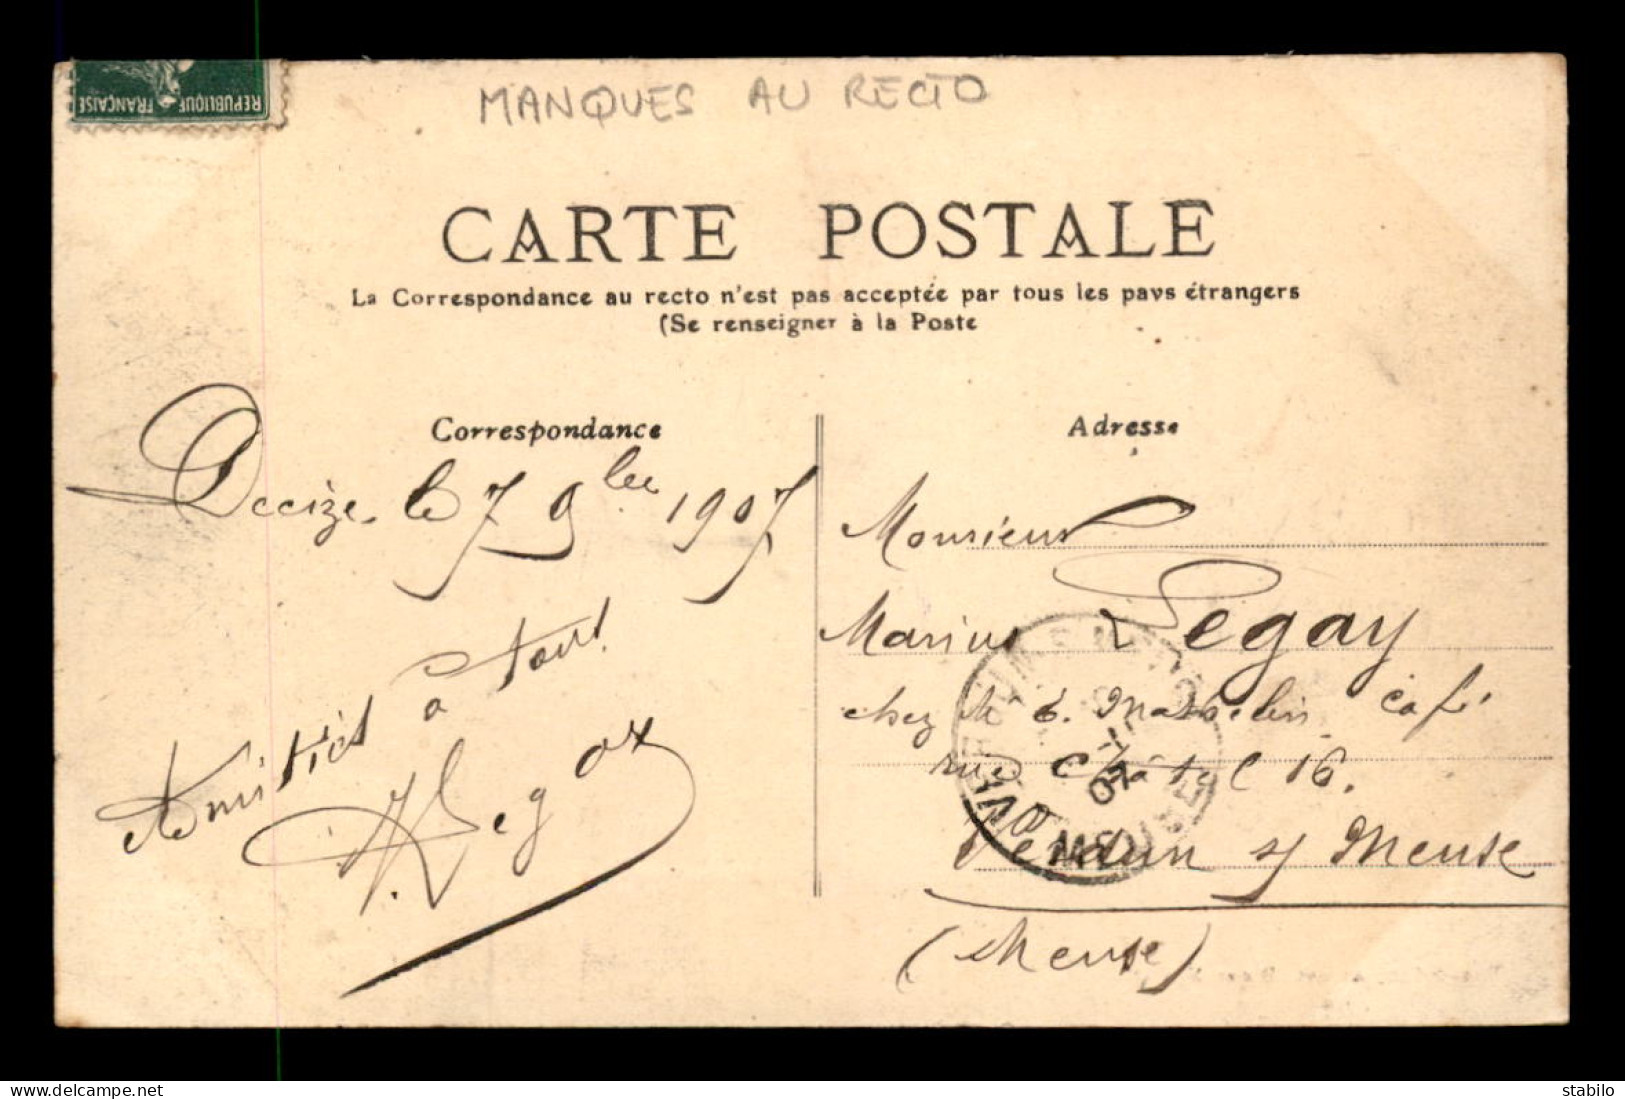 REPUBLIQUE FRANÇAISE
MANQUES AU RECTO
CARTE POSTALE
La Correspondance au recto n'est pas acceptée par tous les pays étrangers
(Se renseigner à la Poste
Correspondance
Decize le 7 9bre 1907
Amitiés à tous
Adresse
Monsieur
Marius Legay
chez Mr café
rue Châtel 16.
Verdun s/ Meuse
(Meuse)
MEUSE
07
delcampe.net
stabilo